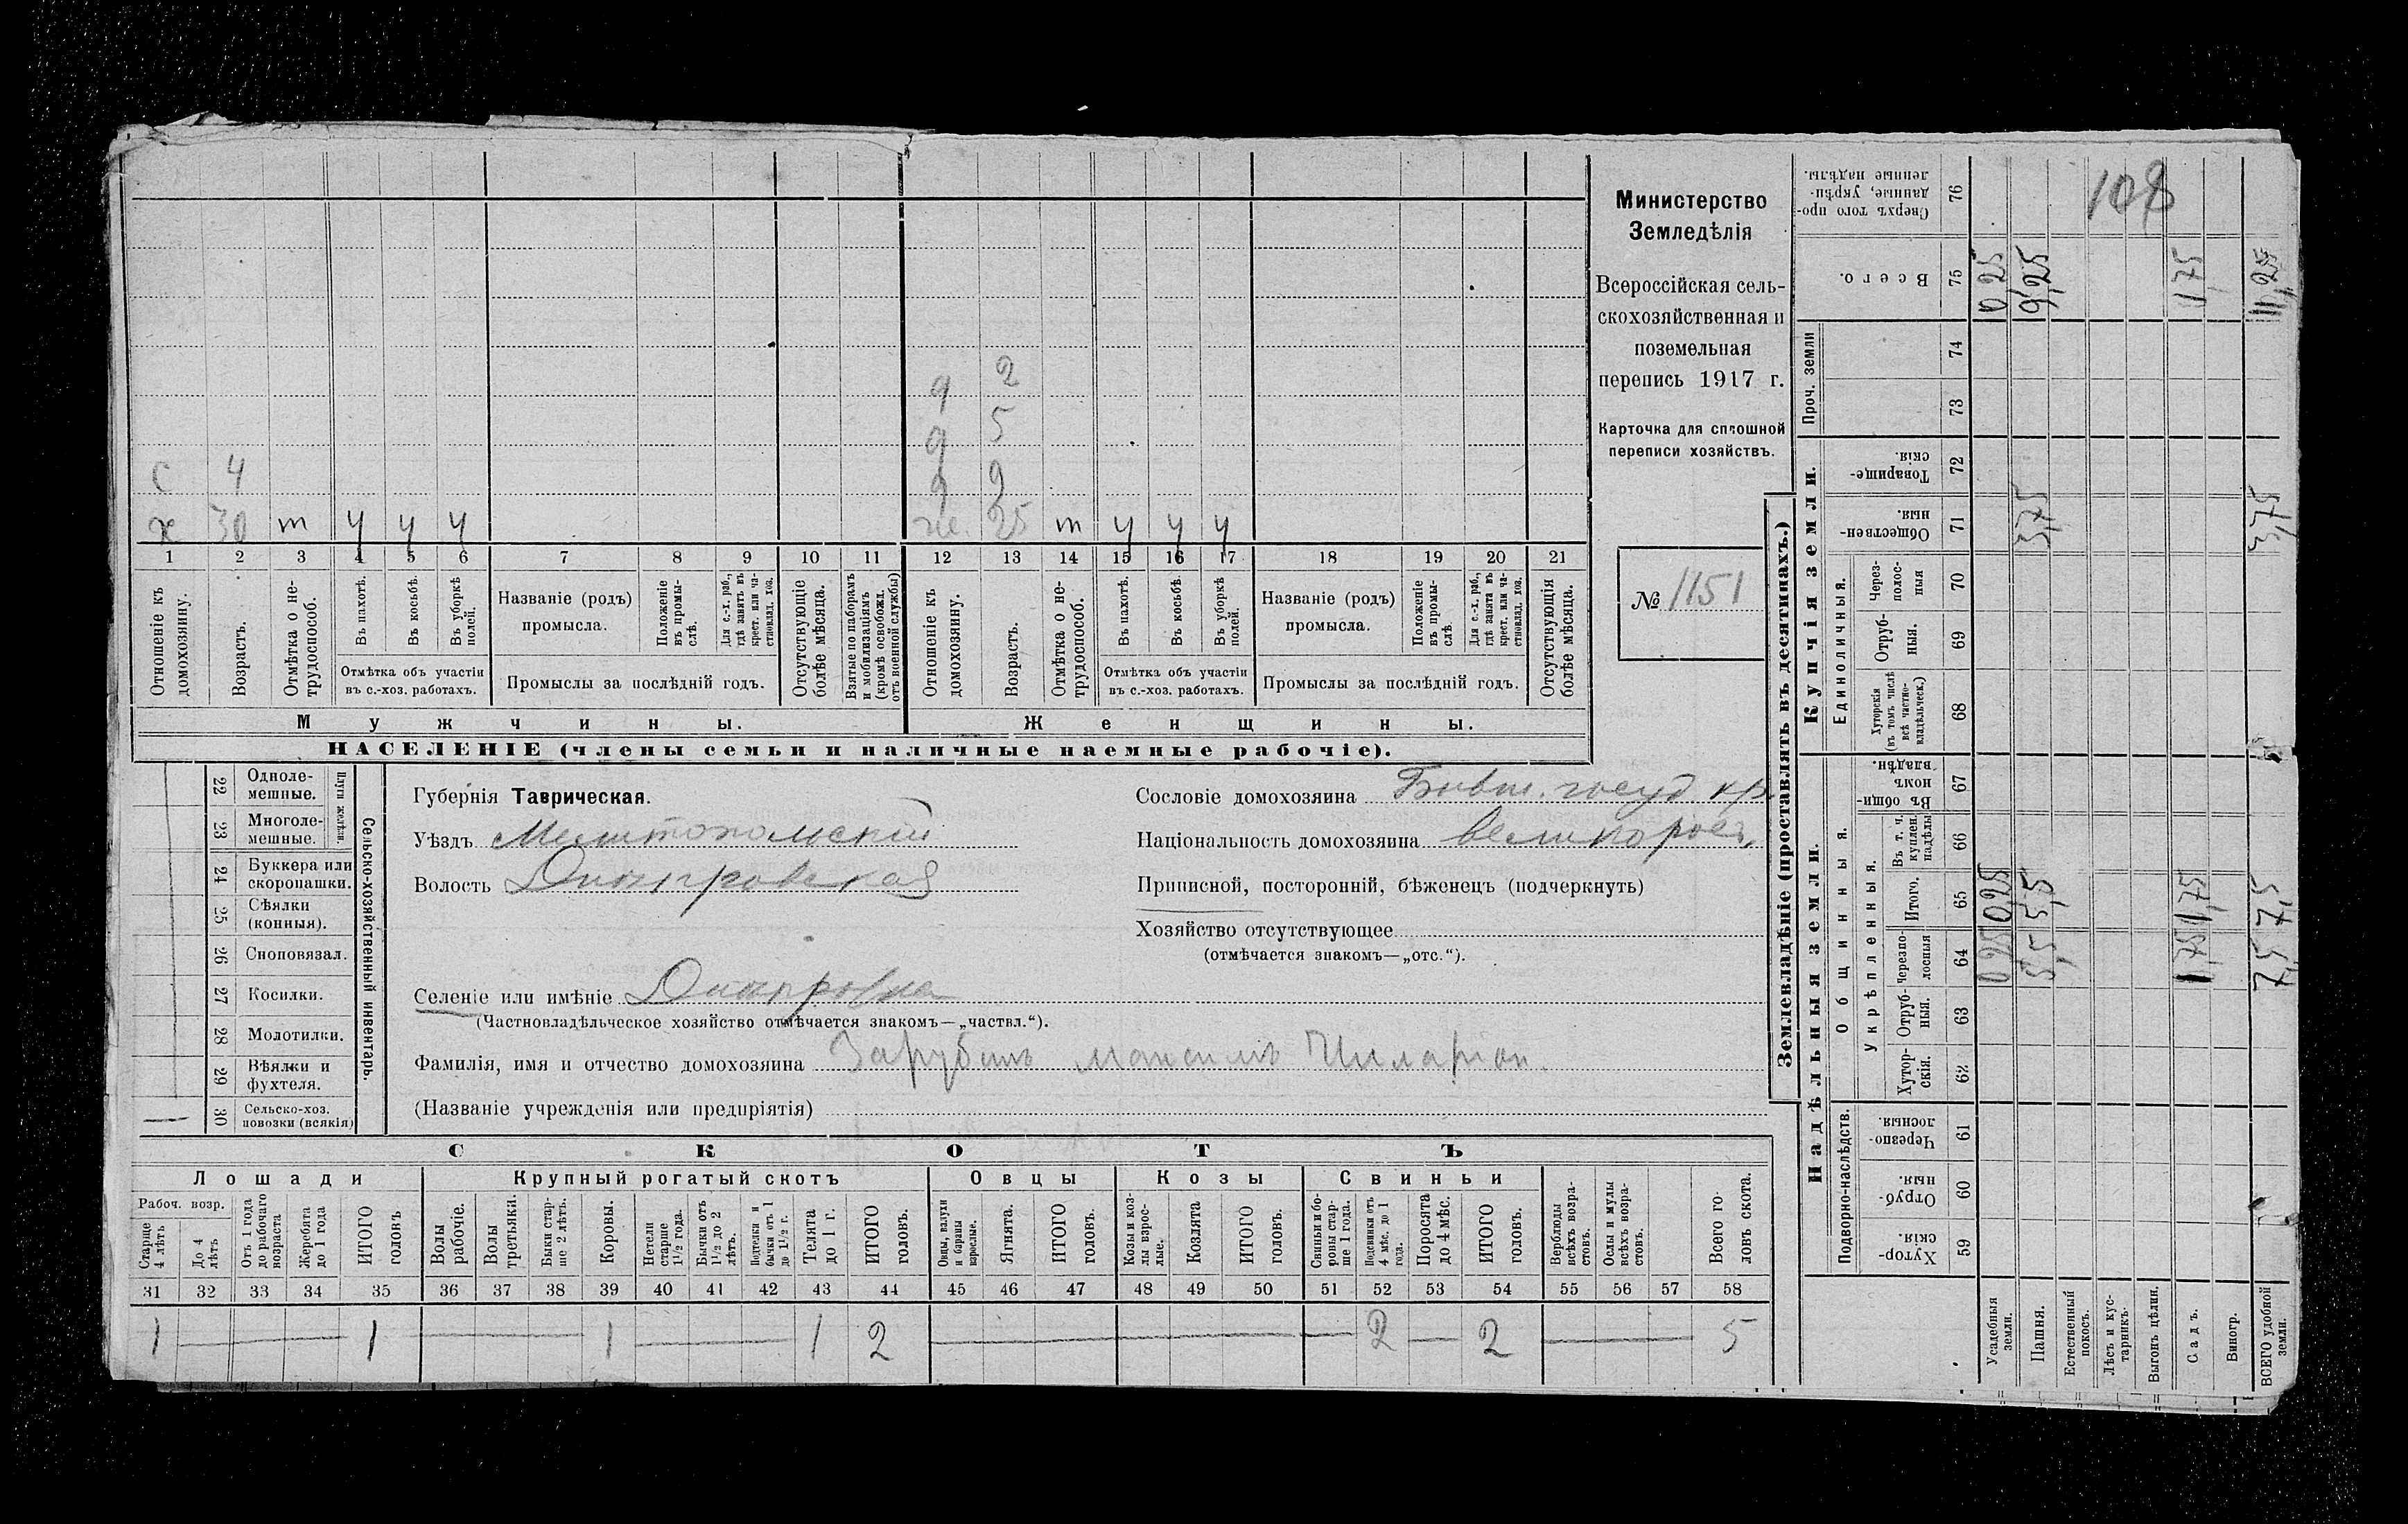 Министерство
Земледѣлія
Всероссійская сель-
скохозяйственная и
поземельная
перепись 1917 г.
Карточка для сплошной
переписи хозяйствъ.
№ 1151
с 4
х 30 т ч ч ч
д 2
д 5
д 9
ж. 25 т ч ч ч
1 2 3 4 5 6 7 8 9 10 11 12 13 14 15 16 17 18 19 20 21
Отношеніе къ домохозяину.
Возрастъ.
Отмѣтка о не-трудоспособ.
Въ пахотѣ.
Въ косьбѣ.
Въ уборкѣ полей.
Отмѣтка объ участіи въ с.-хоз. работахъ.
Названіе (родъ) промысла.
Положеніе въ промы-слѣ.
Для с.-х. раб., гдѣ занятъ въ крест. или ча-стновлад. хоз.
Промыслы за послѣдній годъ.
Отсутствующіе болѣе мѣсяца.
Взятые по наборамъ и мобилизаціямъ (кромѣ освобожд. отъ военной службы)
Отношеніе къ домохозяину.
Возрастъ.
Отмѣтка о не-трудоспособ.
Въ пахотѣ.
Въ косьбѣ.
Въ уборкѣ полей.
Отмѣтка объ участіи въ с.-хоз. работахъ.
Названіе (родъ) промысла.
Положеніе въ промы-слѣ.
Для с.-х. раб., гдѣ занята въ крест. или ча-стновлад. хоз.
Промыслы за послѣдній годъ.
Отсутствующія болѣе мѣсяца.
Мужчины. Женщины.
НАСЕЛЕНІЕ (члены семьи и наличные наемные рабочіе).
22 Одноле-мешные.
23 Многоле-мешные.
Плуги желѣзн.
24 Буккера или скоропашки.
25 Сѣялки (конныя).
26 Сноповязал.
27 Косилки.
28 Молотилки.
29 Вѣялки и фухтеля.
30 Сельско-хоз. повозки (всякія) —
Сельско-хозяйственный инвентарь.
Губернія Таврическая.
Уѣздъ Мелитопольскій
Волость Днѣпровская
Селеніе или имѣніе Днѣпровка
(Частновладѣльческое хозяйство отмѣчается знакомъ—„частвл.“).
Фамилія, имя и отчество домохозяина Зарубинъ Максимъ Иларіон.
(Названіе учрежденія или предпріятія)
Сословіе домохозяина Бывш. госуд. кр.
Національность домохозяина великорос.
Приписной, посторонній, бѣженецъ (подчеркнуть)
Хозяйство отсутствующее
(отмѣчается знакомъ—„отс.“).
СКОТЪ
Лошади Крупный рогатый скотъ Овцы Козы Свиньи
Рабоч. возр.
Старше 4 лѣтъ
До 4 лѣтъ
Отъ 1 года до рабочаго возраста
Жеребята до 1 года
ИТОГО головъ
Волы рабочіе.
Волы третьяки.
Быки стар-ше 2 лѣтъ.
Коровы.
Нетели старше 1½ года.
Бычки отъ 1½ до 2 лѣтъ.
Подтелки и бычки отъ 1 до 1½ г.
Телята до 1 г.
ИТОГО головъ.
Овцы, валухи и бараны взрослые.
Ягнята.
ИТОГО головъ.
Козы и коз-лы взрос-лые.
Козлята
ИТОГО головъ.
Свиньи и бо-ровы стар-ше 1 года.
Подсвинки отъ 4 мѣс. до 1 года.
Поросята до 4 мѣс.
ИТОГО головъ.
Верблюды всѣхъ возра-стовъ.
Ослы и мулы всѣхъ возра-стовъ.
Всего го-ловъ скота.
31 32 33 34 35 36 37 38 39 40 41 42 43 44 45 46 47 48 49 50 51 52 53 54 55 56 57 58
1 — 1 — 1 — 1 2 — 2 — 2 — 5
Землевладѣніе (проставлять въ десятинахъ.)
Надѣльныя земли. Купчія земли. Проч. земли
Подворно-наслѣдств.
Общинныя.
Укрѣпленныя.
Единоличныя.
59 Хутор-скія.
60 Отруб-ныя.
61 Черезпо-лосныя
62 Хутор-скія.
63 Отруб-ныя.
64 Черезпо-лосныя
65 Итого.
66 Въ т. ч. куплен. надѣлы
67 Въ общи-номъ владѣн.
68 Хуторскія (въ томъ числѣ всѣ частно-владѣльческ.)
69 Отруб-ныя.
70 Через-полос-ныя
71 Обществен-ныя.
72 Товарище-скія.
73
74
75 Всего.
76 Сверхъ того про-данные, укрѣп-ленные надѣлы.
Усадебныя земли. 0 25 0,25 0 25
Пашня. 5,5 5,5 3,75 9,25
Естественный покосъ.
Лѣсъ и кус-тарникъ.
Выгонъ цѣлин.
Садъ. 1,75 1,75 1,75
Виногр.
ВСЕГО удобной земли. 7,5 7,5 3,75 11,25
108